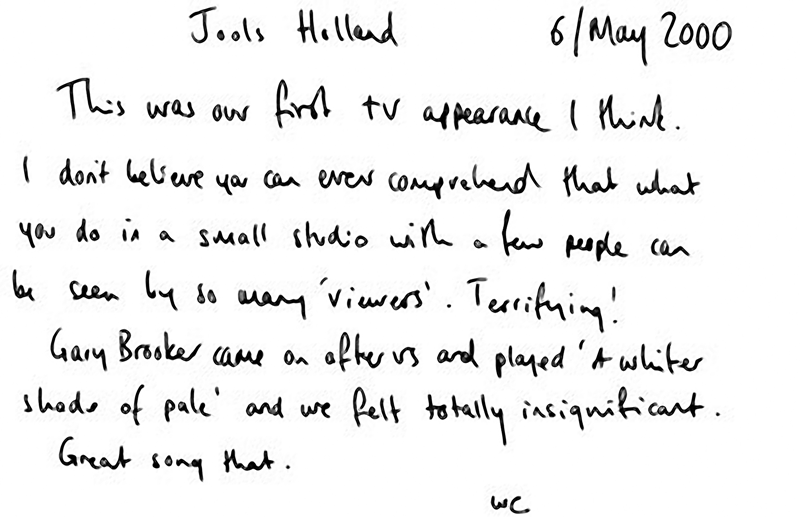 Jools Holland 6/May 2000
This was our first tv appearance I think.
I don't believe you can ever comprehend that what
you do in a small studio with a few people can
be seen by so many 'viewers'. Terrifying!
Gary Brooker came on after us and played 'A whiter
shade of pale' and we felt totally insignificant.
Great song that.
WC